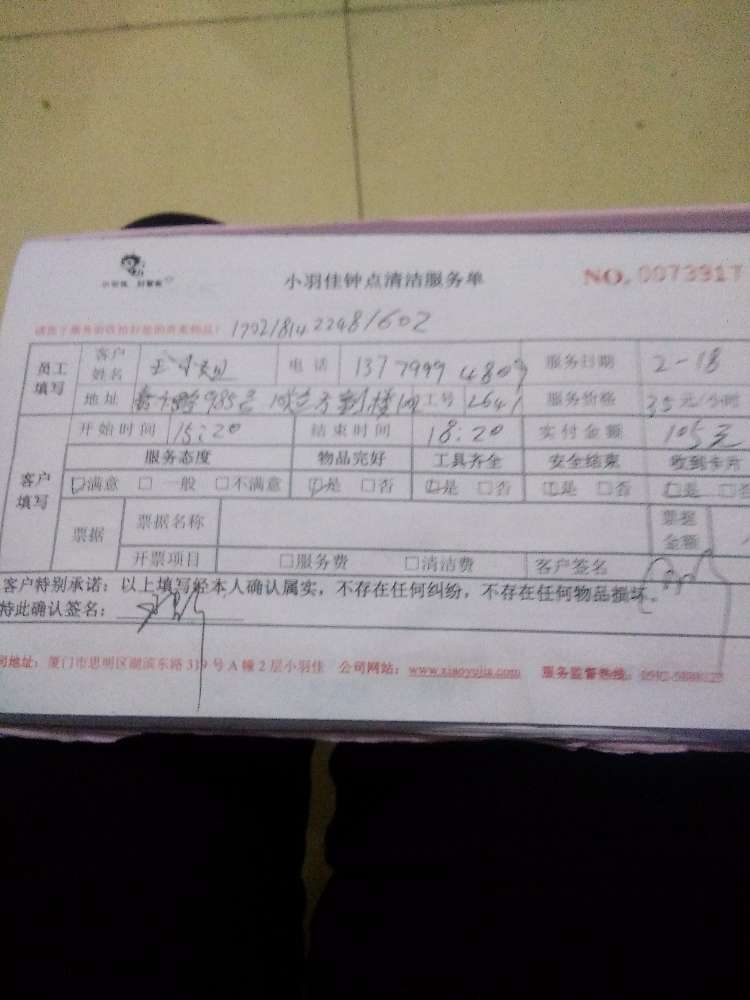 小羽佳钟点清洁服务单 NO. 0073317
1702181422481602
员工填写 客户姓名 电话 13779994809 服务日期 2-18
地址 985号 工号 2641 服务价格 35元/小时
客户填写 开始时间 15:20 结束时间 18:20 实付金额 105元
服务态度 物品完好 工具齐全 安全结束 收到卡片
☑满意 □一般 □不满意 ☑是 □否 ☑是 □否 ☑是 □否 ☑是 □否
票据 票据名称 票据金额
开票项目 □服务费 □清洁费 客户签名
客户特别承诺：以上填写经本人确认属实，不存在任何纠纷，不存在任何物品损坏。
特此确认签名：
司地址：厦门市思明区湖滨东路319号A幢2层小羽佳 公司网站：www.xiaoyujia.com 服务监督热线：